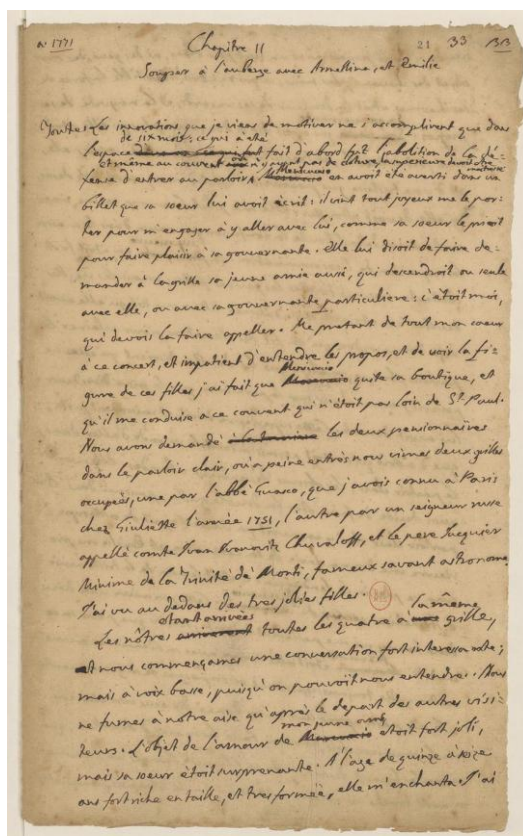 a: 1771 Chapitre II 21 33 1313
Souper à l'auberge avec Armelline, et Emilie
Toutes les innovations que je viens de motiver ne s'accomplirent que dans
de six mois: ce qui a été
l'espace fait d'abord fut l'abolition de la dé-
et même au couvent n'y ayant pas de cloture, la superieure devoit être
fense d'entrer au parloir. Menicuccio en avoit été averti dans un
billet que sa soeur lui avoit écrit: il vint tout joyeux me le por-
ter pour m'engager à y aller avec lui, comme sa soeur le prioit
pour faire plaisir à sa gouvernante. Elle lui disoit de faire de-
mander à la grille sa jeune amie aussi, qui descendroit ou seule
avec elle, ou avec sa gouvernante particuliere: c'étoit moi,
qui devois la faire appeller. Me pretant de tout mon coeur
à ce concert, et impatient d'entendre les propos, et de voir la fi-
Menicuccio
gure de ces filles j'ai fait que quite sa boutique, et
qu'il me conduise a ce couvent qui n'étoit pas loin de St. Paul.
Nous avons demandé à les deux pensionnaires
dans le parloir clair, où à peine entrés nous vimes deux grilles
occupées, une par l'abbé Guasco, que j'avois connu à Paris
chez Giuliette l'année 1751, l'autre par un seigneur russe
appellé comte Ivan Ivanovitz Chuvaloff, et le pere Jacquier
Minime de la Trinité de Monti, fameux savant astronome.
J'ai vu au dedans des tres jolies filles.
etant arrivées la même
Les nôtres toutes les quatre à grille,
nous commençames une conversation fort interessante;
mais à voix basse, puisqu'on pouvoit nous entendre. Nous
ne fumes à notre aise qu'après le depart des autres visi-
mon jeune ami
teurs. L'objet de l'amour de étoit fort joli,
mais sa soeur étoit surprenante. A l'age de quinze à seize
ans fort riche en taille, et tres formée, elle m'enchanta. J'ai